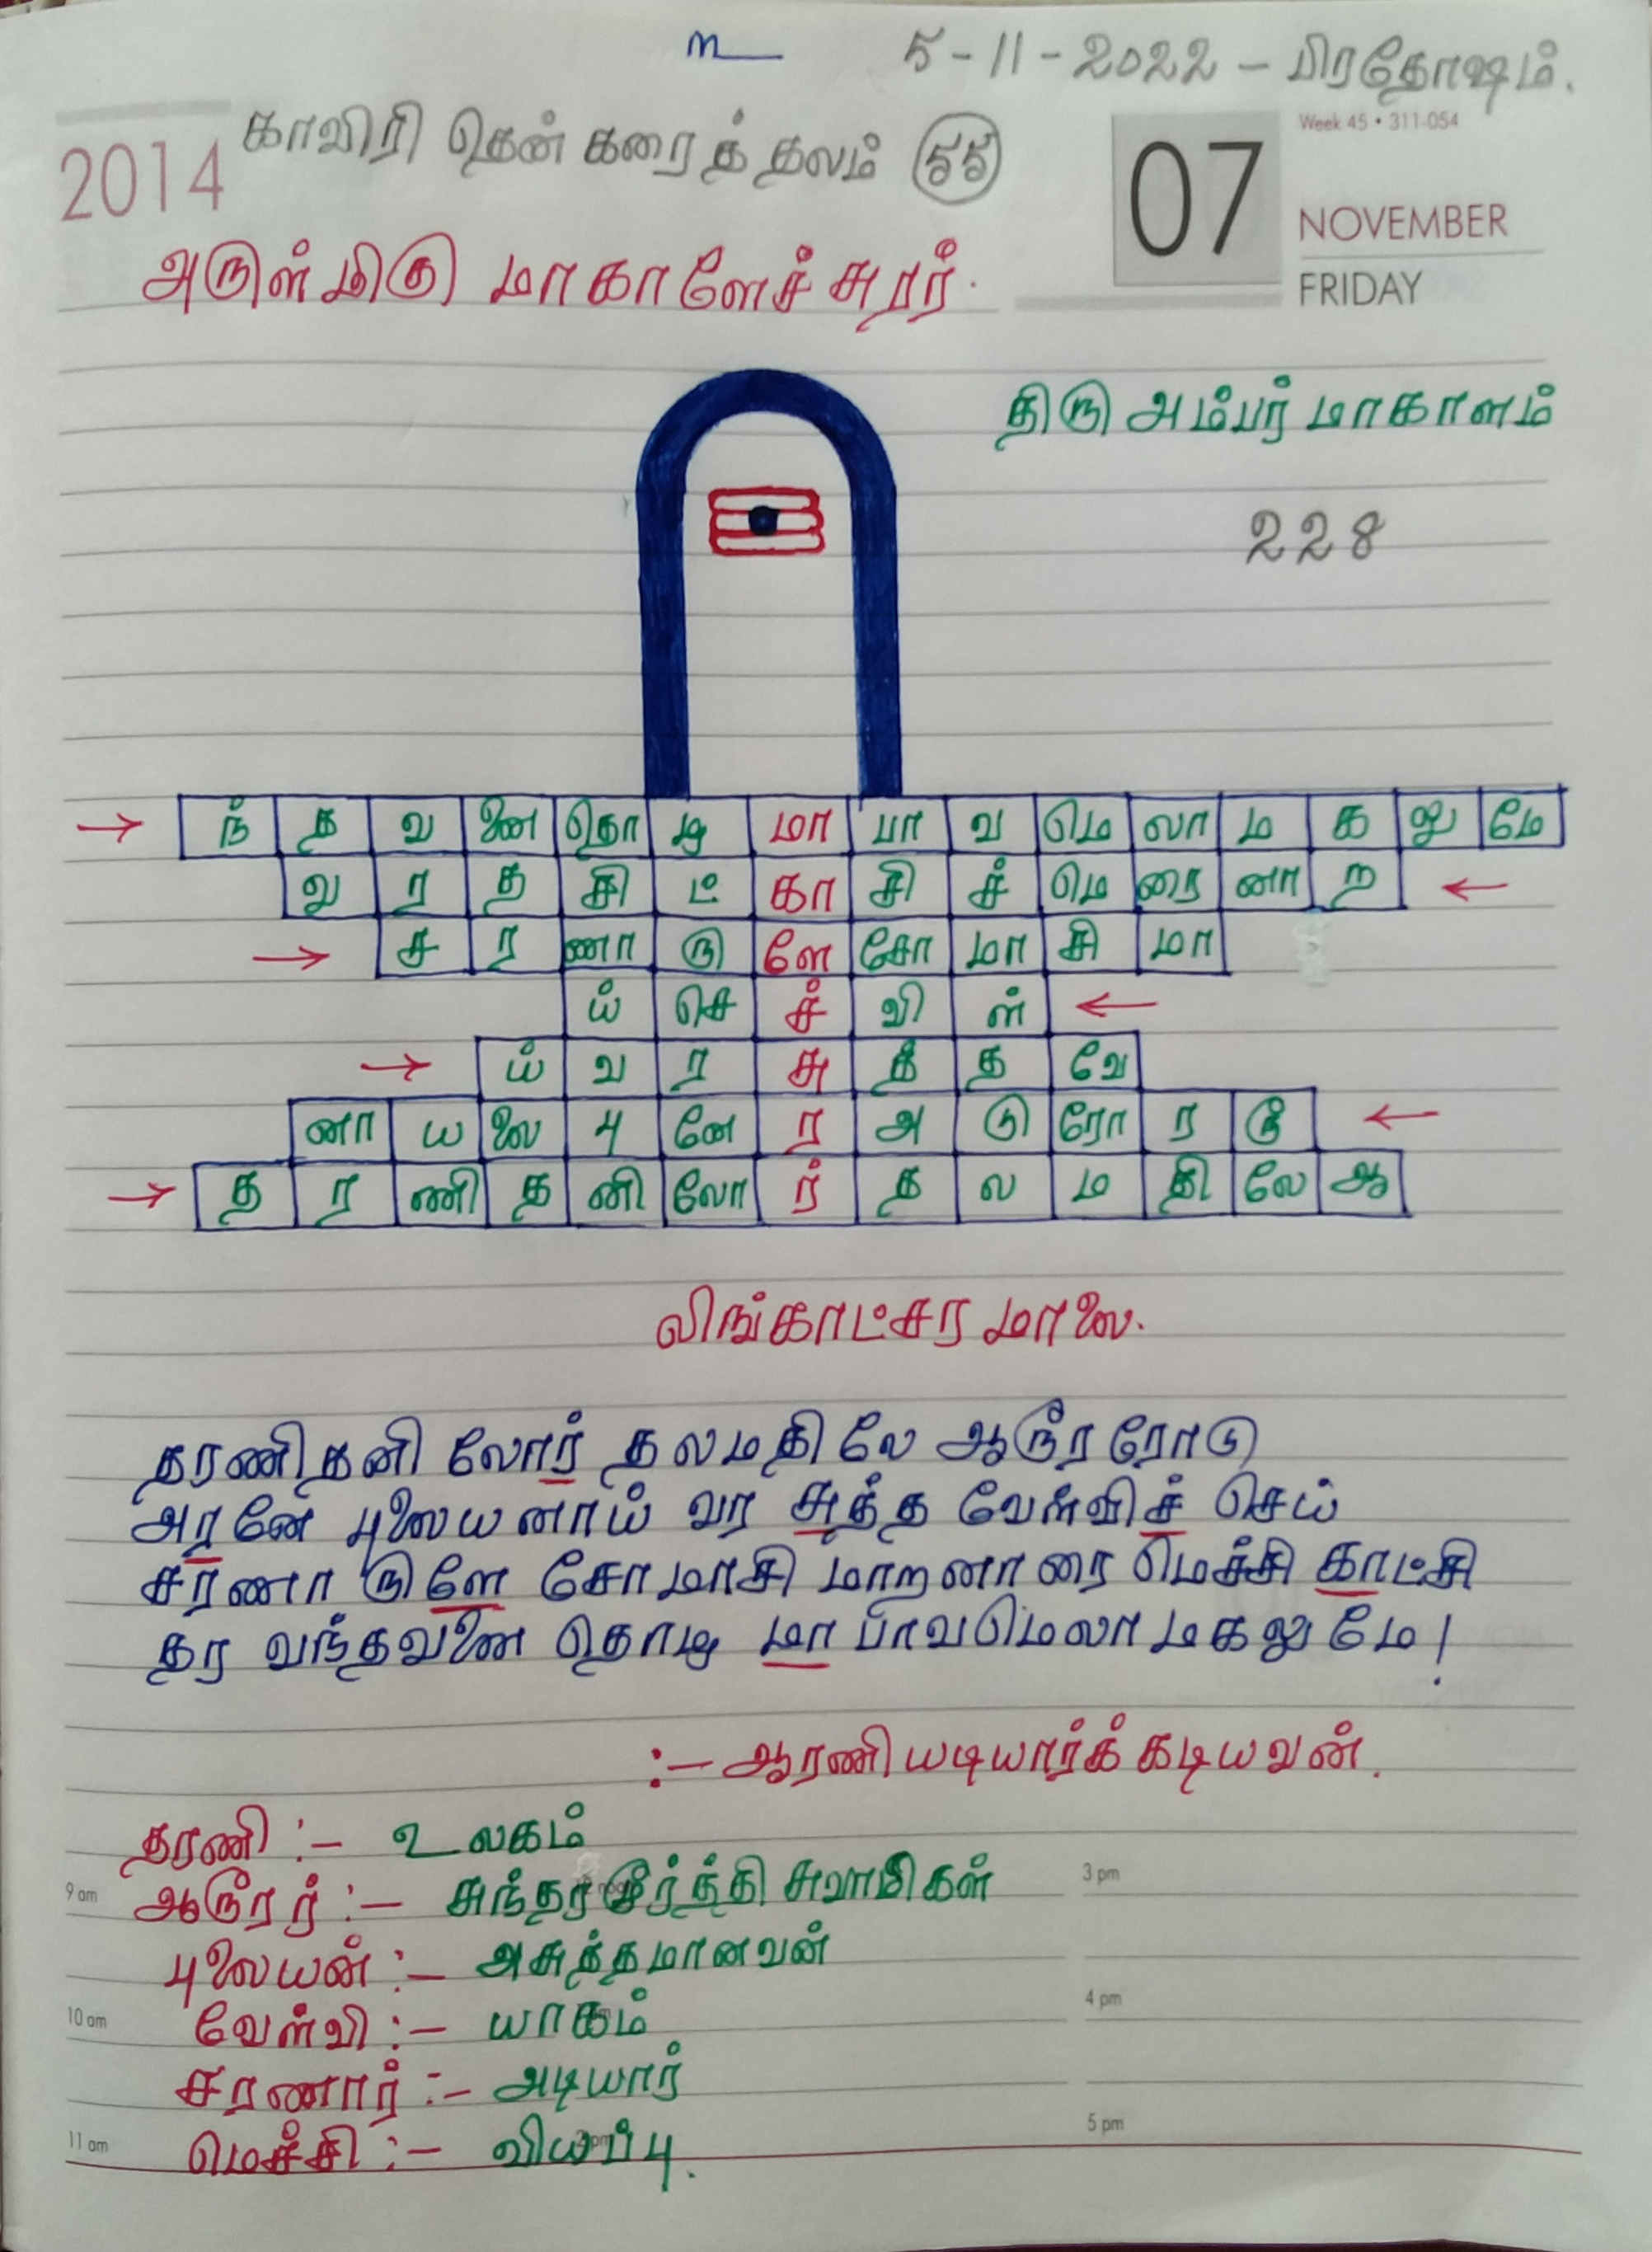 ௳
5-11-2022 – பிரதோஷம்.
2014
காவிரி தென் கரைத் தலம் 55
Week 45 • 311-054
07
NOVEMBER
FRIDAY
அருள்மிகு மாகாளேச்சுரர்.
திரு அம்பர் மாகாளம்
228
→ ந் த வ னை தொ ழ மா பா வ மெ லா ம க லு மே
வ ர த சி ட் கா சி ச் மெ ரை னா ற ←
→ ச ர ணா ரு ளே சோ மா சி மா
ய் செ ச் வி ள் ←
→ ய் வ ர சு த் த வே
னா ய லை பு னே ர அ டு ரோ ர ரூ ←
→ த ர ணி த னி லோ ர் த ல ம தி லே ஆ
லிங்காட்சர மாலை.
தரணிதனி லோர் தலமதிலே ஆரூரரோடு
அரனே புலையனாய் வர சுத்த வேள்விச் செய்
சரணா ருளே சோமாசி மாறனாரை மெச்சி காட்சி
தர வந்தவனை தொழ மா பாவமெலா மகலுமே!
:– ஆரணியடியார்க்கடியவன்.
தரணி :– உலகம்
9 am
ஆரூரர் :– சுந்தரமூர்த்தி சுவாமிகள்
3 pm
புலையன் :– அசுத்தமானவன்
10 am
வேள்வி :– யாகம்
4 pm
சரணார் :– அடியார்
11 am
மெச்சி :– வியப்பு.
5 pm